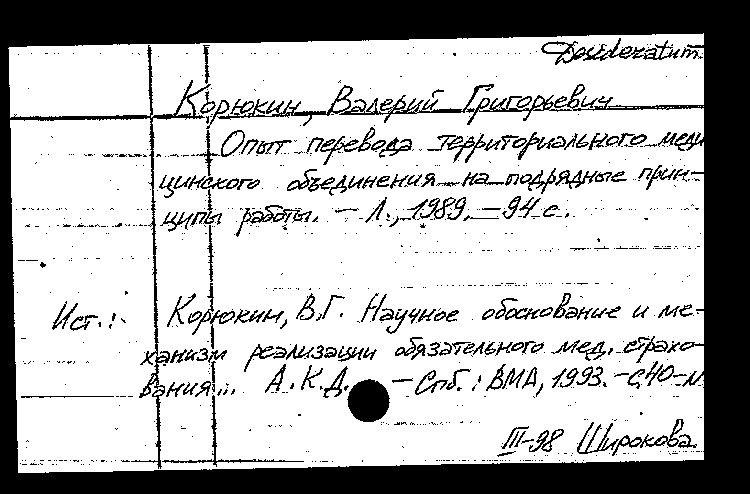 Desideratum
Корюкин, Валерий Григорьевич
Опыт перевода территориального меди
цинского объединения на подрядные прин-
ципы работы. - Л., 1989. - 94 с.
Ист.: Корюкин, В.Г. Научное обоснование и ме-
ханизм реализации обязательного мед. страхо-
вания... А.К.Д. - Спб.: ВМА, 1993. - с.40-м
III-98 Широкова